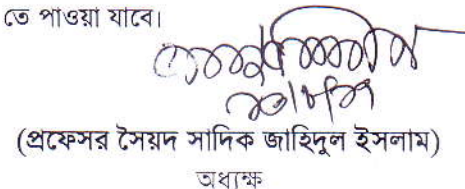 তে পাওয়া যাবে।
(প্রফেসর সৈয়দ সাদিক জাহিদুল ইসলাম)
অধ্যক্ষ